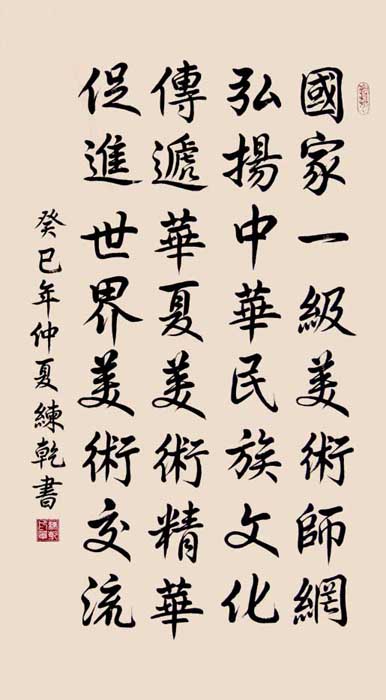 國家一級美術師網
弘揚中華民族文化
傳遞華夏美術精華
促進世界美術交流
癸巳年仲夏練乾書